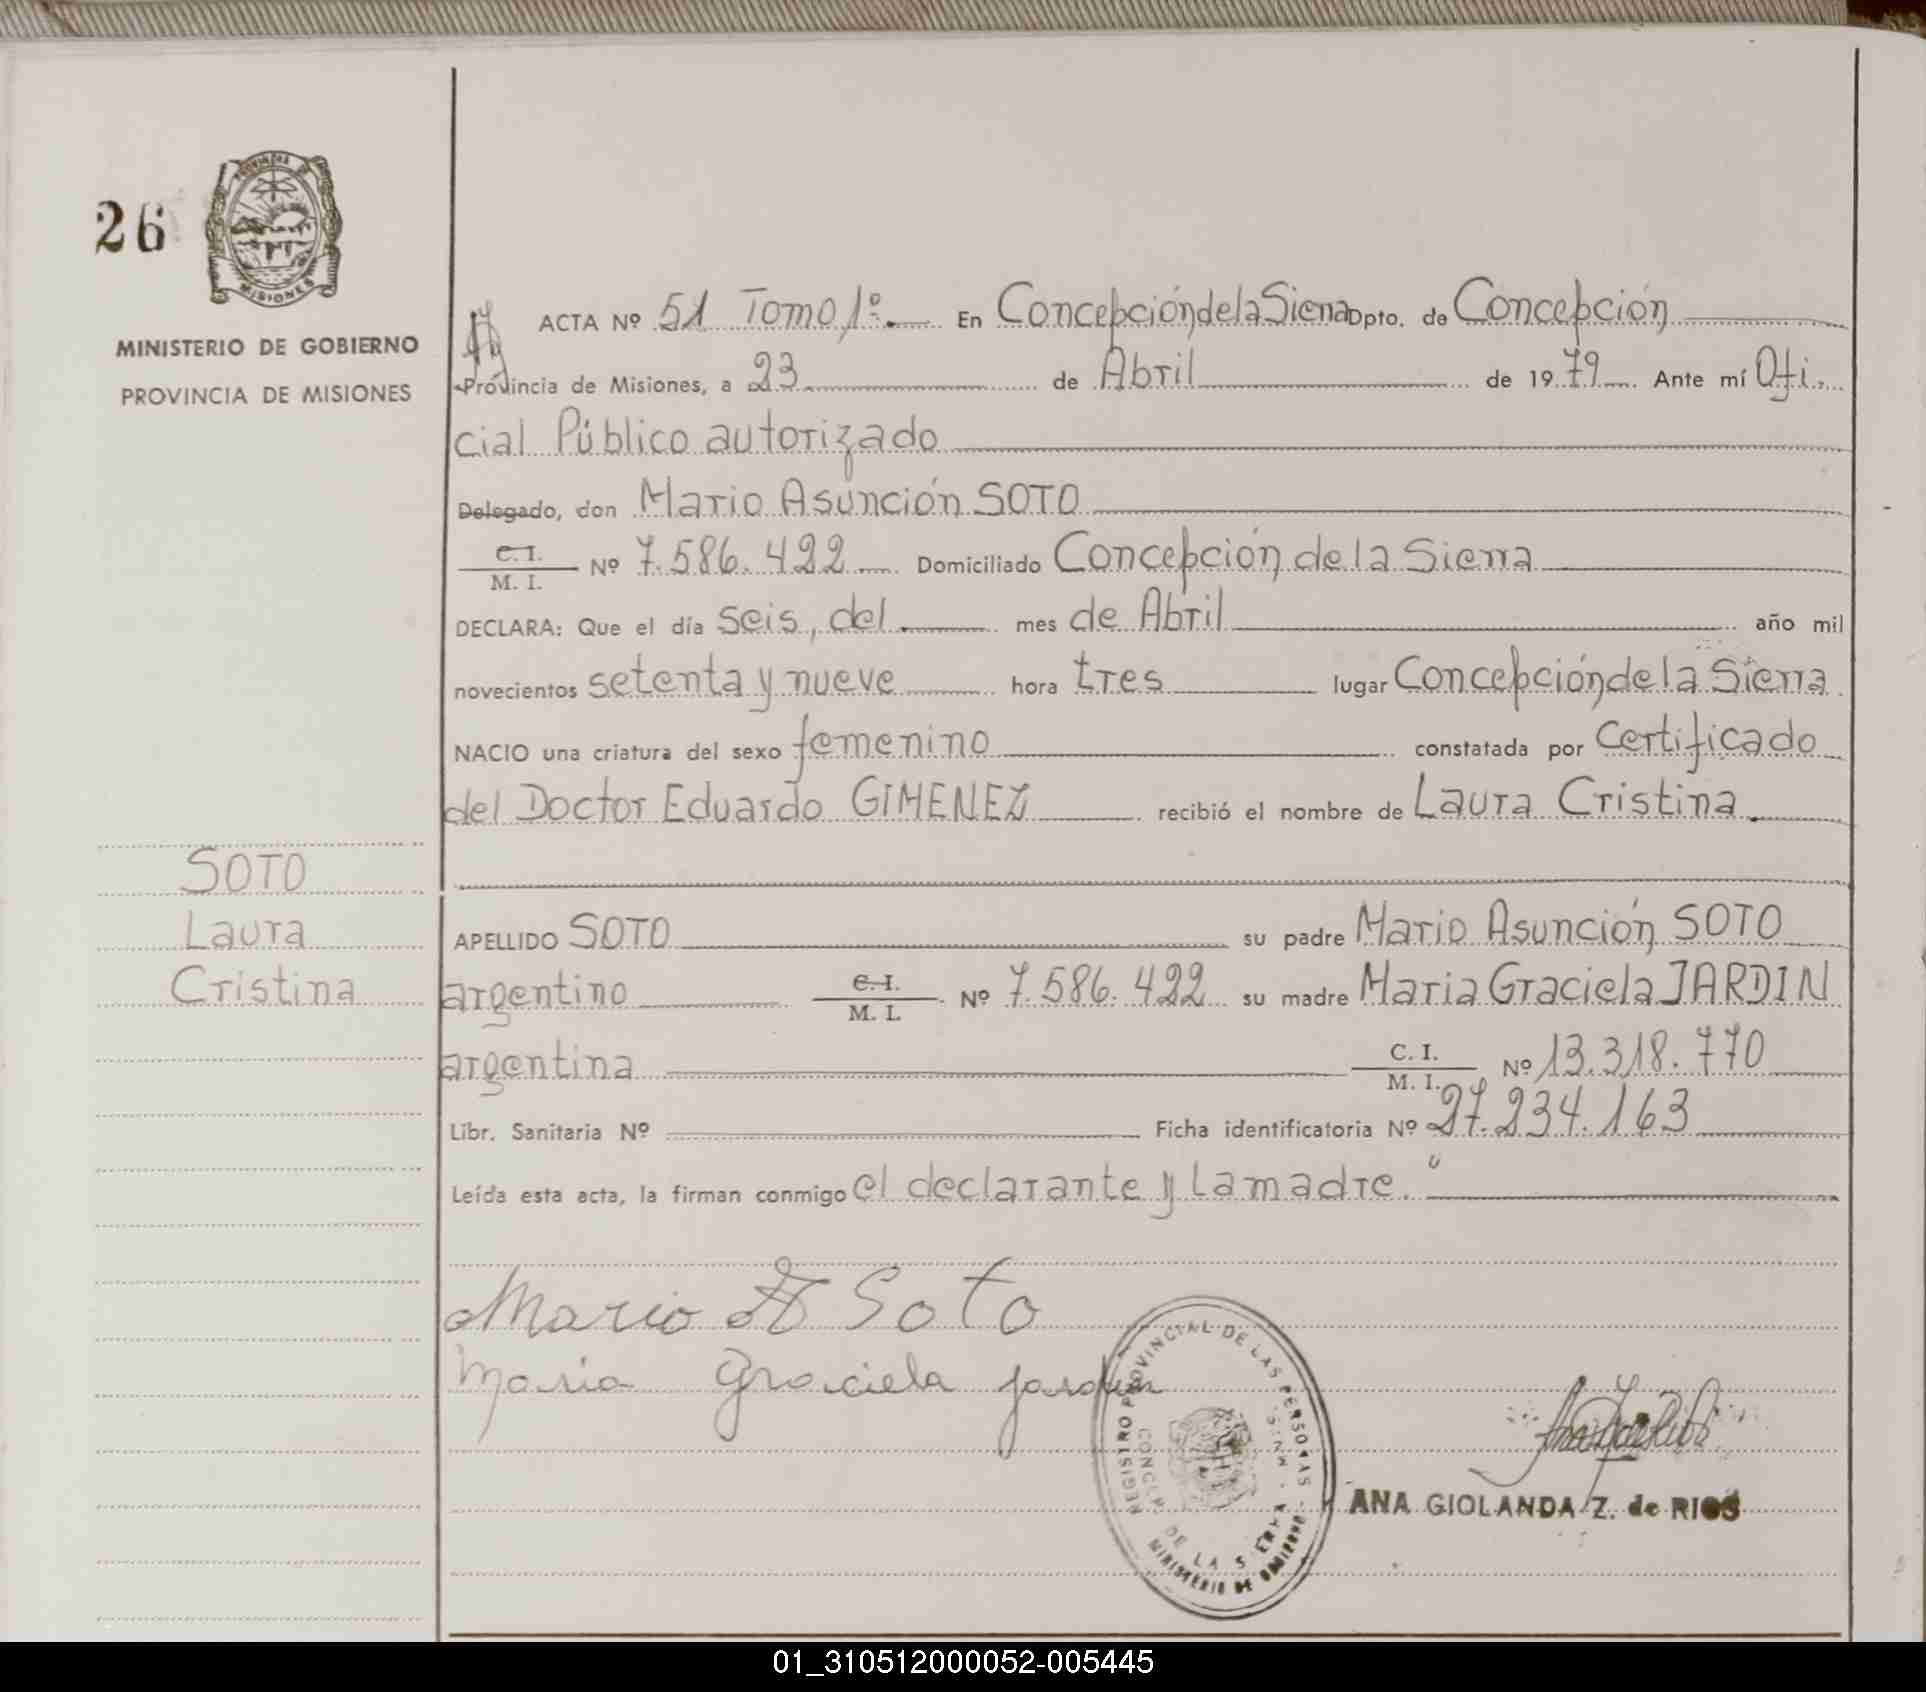 26
PROVINCIA DE
MISIONES
MINISTERIO DE GOBIERNO
PROVINCIA DE MISIONES
SOTO
Laura
Cristina
ACTA Nº 51 Tomo 1º.- En Concepción de la Sierra Dpto. de Concepción
Provincia de Misiones, a 23 de Abril de 1979 Ante mí Ofi-
cial Público autorizado
Delegado, don Mario Asunción SOTO
C. I.
M. I. Nº 7.586.422 Domiciliado Concepción de la Sierra
DECLARA: Que el día seis, del mes de Abril año mil
novecientos setenta y nueve hora tres lugar Concepción de la Sierra
NACIO una criatura del sexo femenino constatada por Certificado
del Doctor Eduardo GIMENEZ recibió el nombre de Laura Cristina.
APELLIDO SOTO su padre Mario Asunción SOTO
argentino C. I. M. I. Nº 7.586.422 su madre Maria Graciela JARDIN
argentina C. I. M. I. Nº 13.318.770
Libr. Sanitaria Nº Ficha identificatoria Nº 27.234.163
Leída esta acta, la firman conmigo el declarante y la madre.
Mario A Soto
Maria Graciela Jardin
REGISTRO PROVINCIAL DE LAS PERSONAS
CONCEP. DE LA SIERRA - MNES.
MINISTERIO DE GOBIERNO
ANA GIOLANDA Z. de RIOS
01_310512000052-005445